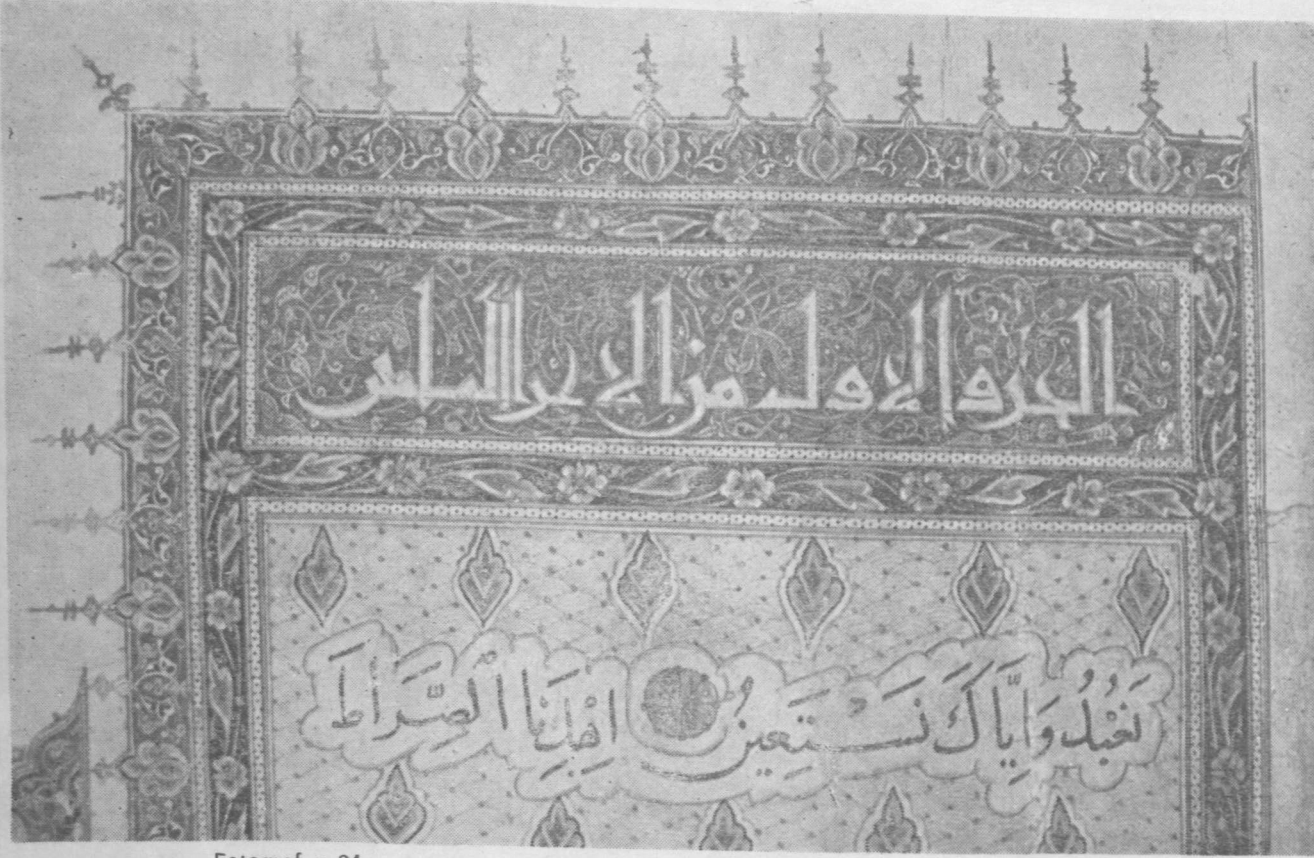 الجزو الاول من الاجزا الثلثين
نَعْبُدُ وَإِيَّاكَ نَسْتَعِينُ اهْدِنَا الصِّرَاطَ